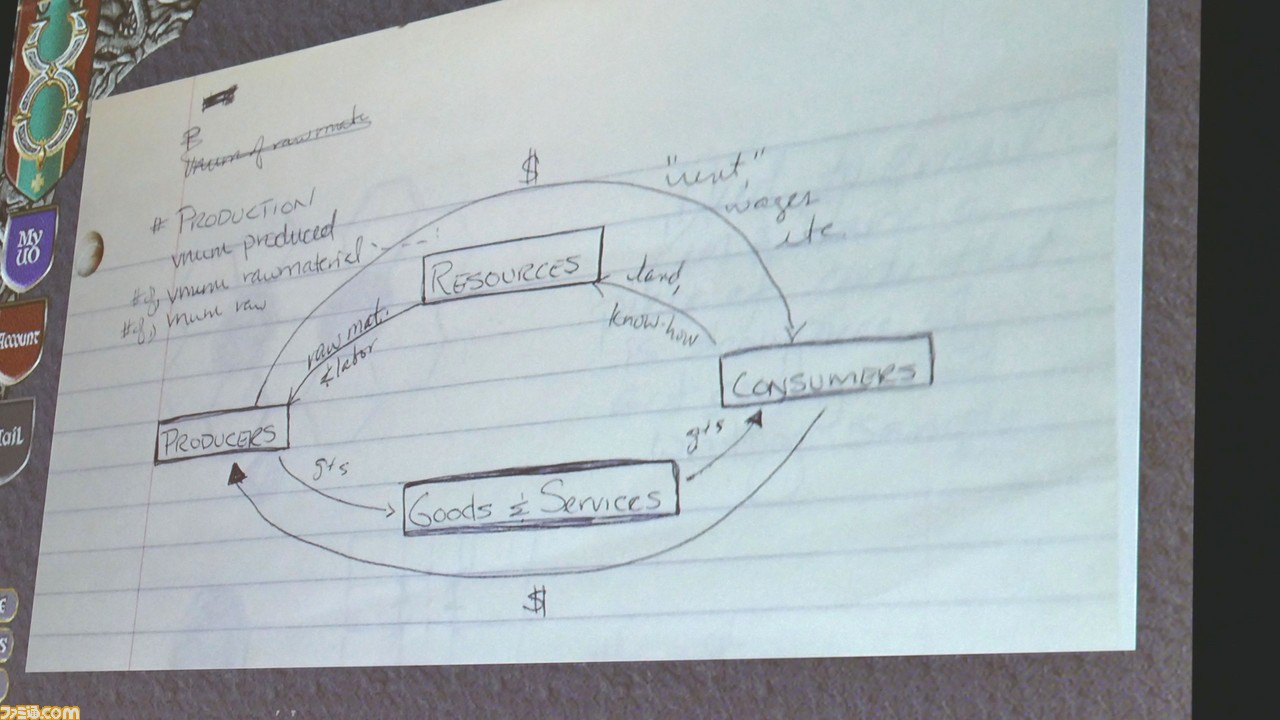 $
"rent,"
wages
etc.
# PRODUCTION
vnum produced
#of, vnum rawmaterial
#of, vnum raw
RESOURCES
land,
know-how
raw mat.
& labor
CONSUMERS
PRODUCERS
g+s
g+s
Goods & Services
$
My
UO
Account
ファミ通.com